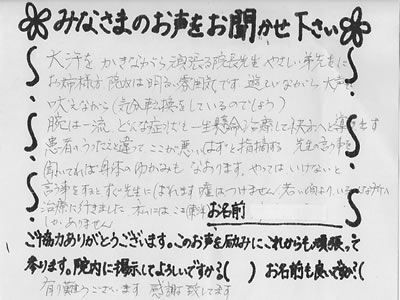 みなさまのお声をお聞かせ下さい
大汗をかきながら頑張る院長先生 やさしい弟先生に
お姉様方 院内は明るい雰囲気です 遊びながら大声で
吠えながら(気分転換をしているのでしょう)
腕は一流 どんな症状でも一生懸命治療して
患者のうったえと違って ここが悪いはずと指摘する 先生の言う事を
聞いてれば身体のゆがみも なおります。やってはいけないと
言う事をすると すぐ先生にばれます 嘘はつけません 若い頃より
治療に行きました 私にはここ
しかありません
お名前
ご協力ありがとうございます。このお声を励みにこれからも頑張って
参ります。院内に掲示してよろしいですか?( ) お名前も良いですか?(
有り難うございます 感謝致してます